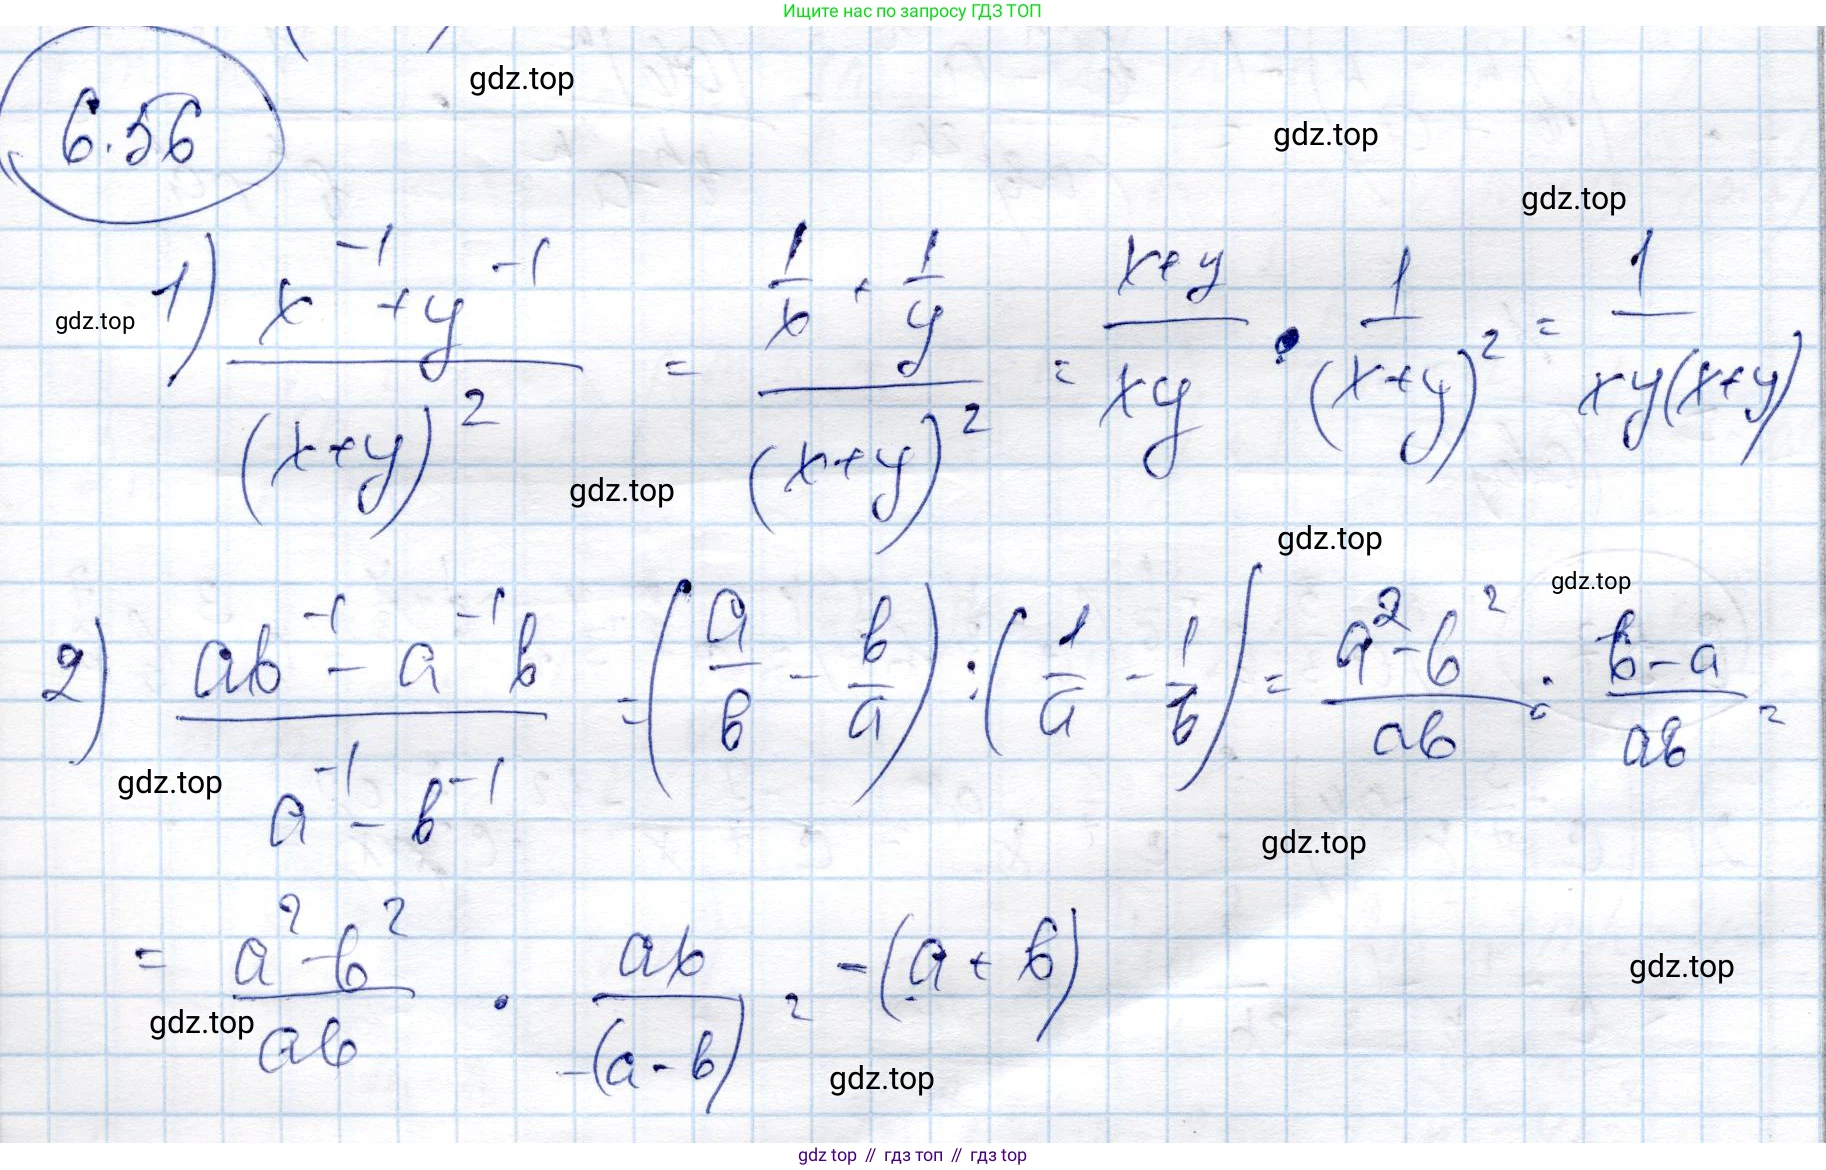 Ищите нас по запросу ГДЗ ТОП
6.56
gdz.top
gdz.top
gdz.top
1) \frac{x^{-1}+y^{-1}}{(x+y)^2} = \frac{\frac{1}{x}+\frac{1}{y}}{(x+y)^2} = \frac{x+y}{xy} \cdot \frac{1}{(x+y)^2} = \frac{1}{xy(x+y)}
gdz.top
gdz.top
gdz.top
gdz.top
2) \frac{ab^{-1} - a^{-1}b}{a^{-1} - b^{-1}} = \left(\frac{a}{b} - \frac{b}{a}\right) : \left(\frac{1}{a} - \frac{1}{b}\right) = \frac{a^2-b^2}{ab} : \frac{b-a}{ab} =
gdz.top
gdz.top
= \frac{a^2-b^2}{ab} \cdot \frac{ab}{-(a-b)} = -(a+b)
gdz.top
gdz.top
gdz.top
gdz top // гдз топ // гдз top